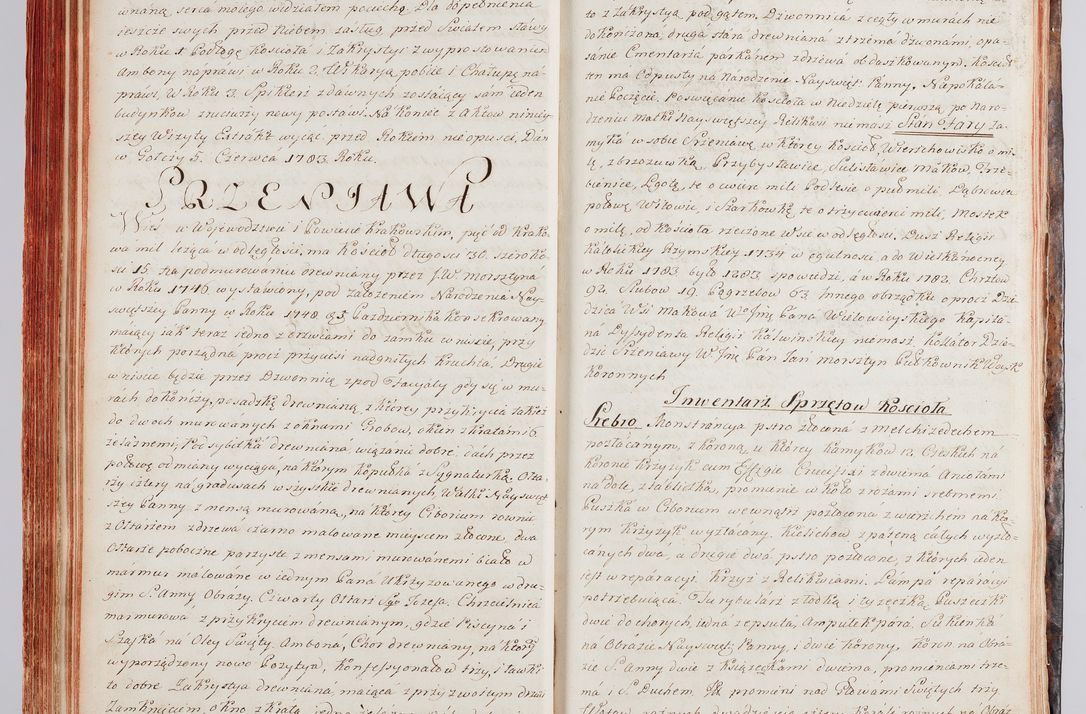 wnaną serca moiego widziałem pociechą Dla dopełnienia
ieszcze swych przed Niebem zasług przed Swiatem sławy
w Roku 1 Podłogę Kościoła i Zakrystyi z wyprostowaniem
Ambony naprawi w Roku 2. Wikaryą pobije i Chałupę na-
prawi, W Roku 3. Spiklerz z dawnych zostaiący sam ieden
budynków zruciwszy nowy postawi. Na koniec z Aktow ninieÿ-
szey Wizyty Extrakt wyciąć przed Rokiem nieopusci, Dan
w Gołczy 5. Czerwca 1783 Roku.
PRZENIAWA
Wieś w Woiewodztwie i Powiecie Krakowskim, pięć od Krako-
wa mil leżąca w odległości, ma Kościoł długosci 30. szeroko-
ści 15. na podmurowaniu drewniany przez J.W. Morsztyna
w Roku 1746 wystawiony, pod założeniem Narodzenia Nay-
swiętszey Panny w Roku 1748 D 5 Pazdziernika konsekrowany
maiący iak teraz iedno z drzwiami do zamku weiscie, przy
których porządna procz przyciesi nadgniłych Kruchta, Drugie
weiscie będzie przez Dzwonnicą z pod Facyaty gdy się w mu-
rach dokończy, posadzką drewnianą, z ktorey przykrycia także
do dwoch murowanych z oknami Grobow, okien z kratami 6
żelaznemi, Podsybitka drewniana, wiązanie dobre, dach przez
połowę odmiany wyciąga, na ktorym kopułka z Sygnaturką, Olta-
rzy cztery na gradusach wszystkie drewnianych, Wielki Nayswięt-
szey Panny z mensą murowaną, na ktorey Ciborium rownie
z Ołtarzem z drzewa czarno malowane mieyscem złocone, dwa
Ołtarze poboczne parzyste z mensami murowanemi biało w
marmur malowane w iednym Pana Ukrzyzowanego w dru-
gim S. Anny, Obrazy. Czwarty Ołtarz Sgo Jozefa. Chrzcielnica
marmurowa z przykryciem drewnianym, gdzie Piscyna i
Szafka na Oley Swięty. Ambona, Chor drewniany, na ktory
wyporządzony nowo Pozytyw, konfessyonałow trzy, i ławki
to dobre Zakrystya drewniana, maiąca z przyzwoitym drzwi
zamknięciem, okno z kratą
to z Zakrystyą pod gątem, Dzwonnica z cegły w murach nie
dokończona, druga stara drewniana z trzema dzwonami, opa-
sanie Cmentarza parkanem z drzewa obdaszkowanym. Kościoł
ten ma Odpusty na Narodzenie Nayswięt: Panny, Niepokala-
nie Poczęcie, Poswięcanie Kościoła w Niedzielę pierwszą po Naro-
dzeniu Matki Nayswiętszey Relikwii niemasz Stan Fary za-
myka w sobie Przeniawę, w ktorey Kościoł, Wierzchowiska o mi-
lę, zbrzozuwka, Przybysławice, Sulisławice Makow, Trze-
bienice, Lgotę, te o cwierć mili Podlesie o puł mili, Dąbrowiec
połowę Wilowie, i Szarkowkę, te o trzy cwierci mili, Mostek
o milę, od Kościoła rzeczone Wsie w odległości. Dusz Religii
Katolickiey Rzymskiey 1734 w ogulnosci, a do Wielkanocney
w Roku 1783 było 1283 spowiedzi, i w Roku 1782. Chrztow
92. Slubow 19. Pogrzebow 63. Innego obrządku oprocz Dzie-
dzica Wsi Makowa Wo Jmć Pana Wielowieyskiego Kapita-
na Dyssydenta Religii Kalwinskiey niemasz, Kolator Dzie-
dzic Przeniawy W Jmć Pan Jan Morsztyn Pułkownik Woysk
Koronnych
Inwentarz Sprzętow Kościoła
Srebro. Monstrancya pstro złocona z Melchizedechem
pozłacanym, z koroną, u ktorey kamykow 12. Czeskich na
koronie krzyżyk cum Effigie Crucifixi z dwiema Aniołami
na dole, z tabliczką, promienie w koło z rożami srebrnemi
Puszka w Ciborium wewnątrz pozłacana z wierzchem na kto-
rym krzyżyk wyzłacany, Kielichow z pateną całych wyzło-
canych dwa, a drugie dwa pstro pozłacone, z ktorych ieden
iest w reparacyi, Krzyż z Relikwiami. Lampa reparacyi
potrzebuiąca. Turybularz z łodką i łyżeczką, Puszeczki
dwie do chorych, iedna zepsuta, Ampułek para, Sukienka
na Obrazie Nayswięt: Panny, i dwie korony, koron na Obra-
zie S. Anny dwie z książeczkami dwiema, promieniami trze-
ma i S. Duchem. promieni nad Głowami Swiętych trzy